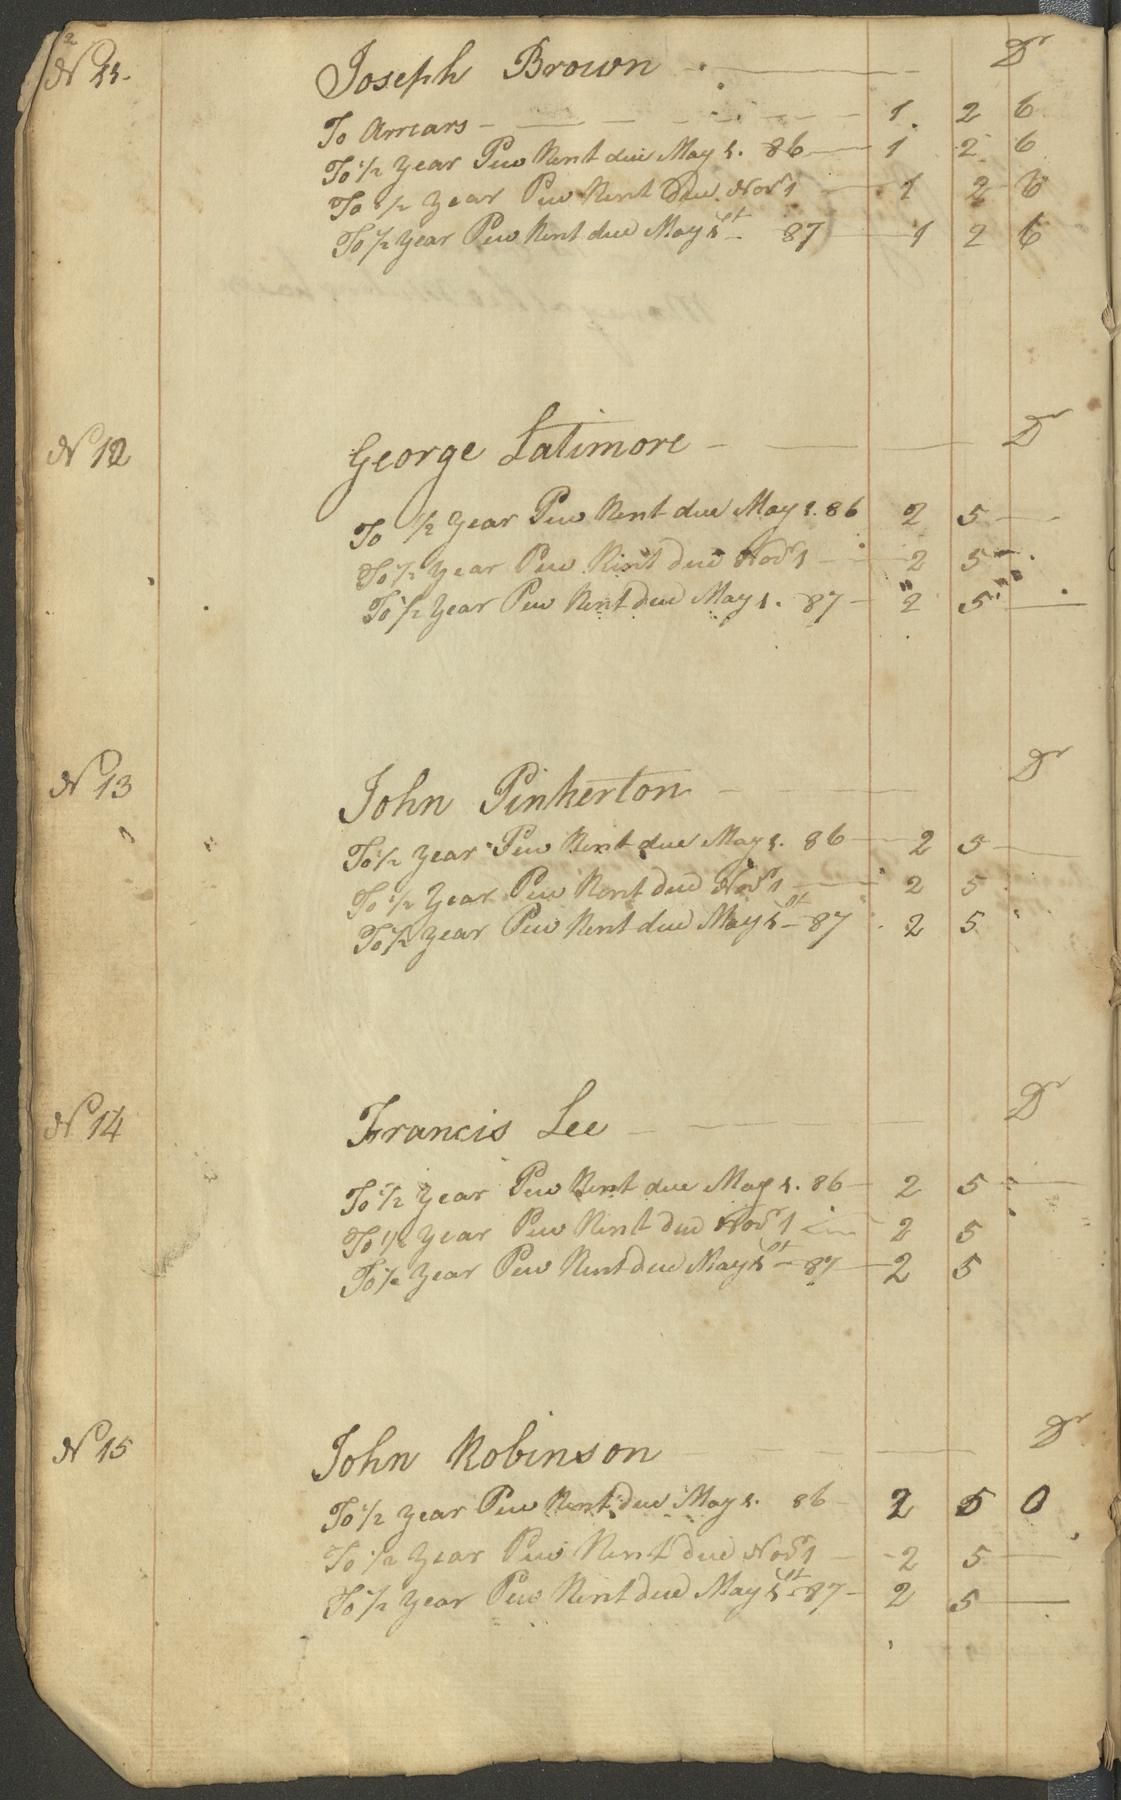 2
No 11. Joseph Brown Dr
To Arrears 1 2 6
To 1/2 Year Pew Rent due May 1. 86 1 2 6
To 1/2 Year Pew Rent Due Novr 1 1 2 6
To 1/2 Year Pew Rent due May 1st 87 1 2 6
No 12 George Latimore Dr
To 1/2 Year Pew Rent due May 1. 86 2 5
To 1/2 Year Pew Rent due Novr 1 2 5
To 1/2 Year Pew Rent due May 1. 87 2 5
No 13 John Pinkerton Dr
To 1/2 Year Pew Rent due May 1. 86 2 5
To 1/2 Year Pew Rent due Novr 1 2 5
To 1/2 Year Pew Rent due May 1st 87 2 5
No 14 Francis Lee Dr
To 1/2 Year Pew Rent due May 1. 86 2 5
To 1/2 Year Pew Rent due Novr 1 2 5
To 1/2 Year Pew Rent due May 1st 87 2 5
No 15 John Robinson Dr
To 1/2 Year Pew Rent due May 1. 86 2 5 0
To 1/2 Year Pew Rent due Novr 1 2 5
To 1/2 Year Pew Rent due May 1st 87 2 5